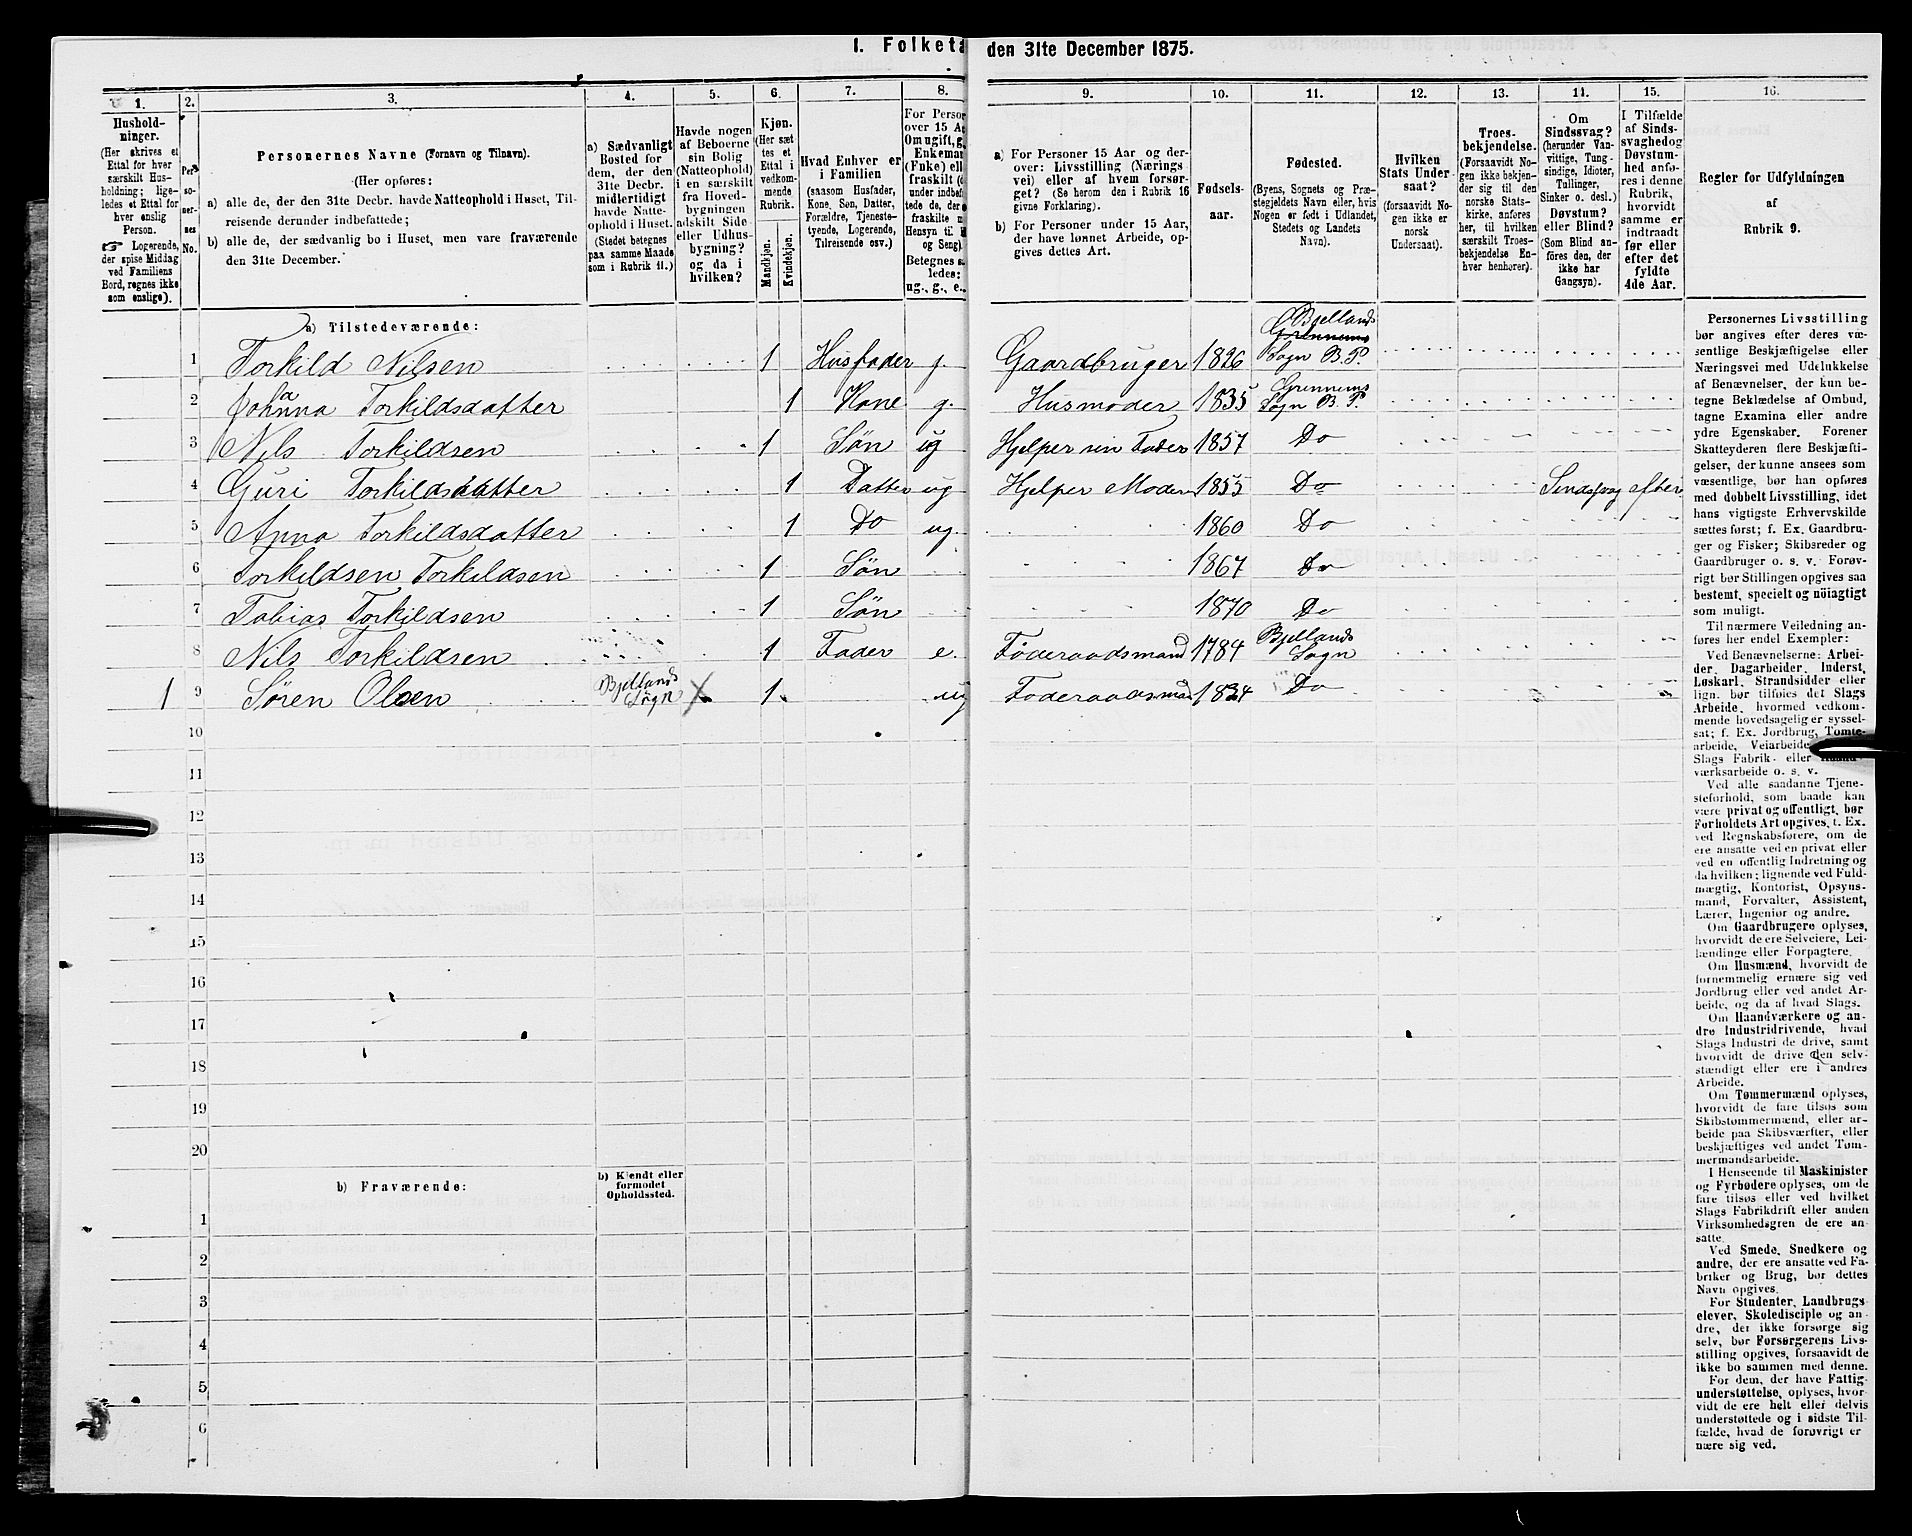 I. Folketæ
den 31te December 1875.
1.
2.
3.
4.
5.
6.
7.
8.
9.
10.
11.
12.
13.
14.
15.
16.
Hushold-
ninger.
(Her skrives et
Ettal for hver
særskilt Hus-
holdning; lige-
ledes et Ettal for
hver enslig
Person.
☞ Logerende,
der spise Middag
ved Familiens
Bord, regnes ikke
som enslige).
Per-
so-
ner-
nes
No.
Personernes Navne (Fornavn og Tilnavn).
(Her opføres:
a) alle de, der den 31te Decbr. havde Natteophold i Huset, Til-
reisende derunder indbefattede;
b) alle de, der sædvanlig bo i Huset, men vare fraværende
den 31te December.
a) Sædvanligt
Bosted for
dem, der den
31te Decbr.
midlertidigt
havde Natte-
ophold i Huset.
(Stedet betegnes
paa samme Maade
som i Rubrik 11.)
Havde nogen
af Beboerne
sin Bolig
(Natteophold)
i en særskilt
fra Hoved-
bygningen
adskilt Side-
eller Udhus-
bygning?
og da i
hvilken?
Kjøn.
(Her sæt-
tes et
Ettal i
vedkom-
mende
Rubrik.
Mandkjøn.
Kvindekjøn.
Hvad Enhver er
i Familien
(saasom Husfader,
Kone, Søn, Datter,
Forældre, Tjeneste-
tyende, Logerende,
Tilreisende osv.)
For Person
over 15 Aa
Om ugift, g
Enkeman
(Enke) ell
fraskilt (
under indbef
tede de, der
fraskilte
Hensyn til
og Seng).
Betegnes s
ledes:
ug., g., e.,
a) For Personer 15 Aar og der-
over: Livsstilling (Nærings-
vei) eller af hvem forsør-
get? (Se herom den i Rubrik 16
givne Forklaring).
b) For Personer under 15 Aar,
der have lønnet Arbeide, op-
gives dettes Art.
Fødsels-
aar.
Fødested.
(Byens, Sognets og Præ-
stegjeldets Navn, eller, hvis
Nogen er født i Udlandet,
Stedets og Landets
Navn).
Hvilken
Stats Under-
saat?
(forsaavidt No-
gen ikke er
norsk
Undersaat).
Troes-
bekjendelse.
(Forsaavidt No-
gen ikke bekjen-
der sig til den
norske Stats-
kirke, anføres
her, til hvilken
særskilt Troes-
bekjendelse En-
hver henhører).
Om
Sindssvag?
(herunder Van-
vittige, Tung-
sindige, Idioter,
Tullinger,
Sinker o. desl.)
Døvstum?
eller Blind?
(Som Blind an-
føres den, der
ikke har
Gangsyn).
I Tilfælde
af Sinds-
svaghed og
Døvstum-
hed anfø-
res i denne
Rubrik,
hvorvidt
samme er
indtraadt
før eller
efter det
fyldte
4de Aar.
Regler for Udfyldningen
af
Rubrik 9.
a) Tilstedeværende:
1 Torkild Nilsen 1 Husfader g. Gaardbruger 1826 Grennems Bjellands Sogn B. P.
2 Johanna Torkildsdatter 1 Kone g. Husmoder 1835 Grennems Sogn B. P.
3 Nils Torkildsen 1 Søn ug Hjelper sin Fader 1857 Do
4 Guri Torkildsdatter 1 Datter ug Hjelper Moderen 1855 Do Sindssvag efter
5 Anna Torkildsdatter 1 Do ug 1860 Do
6 Torkildsen Torkildsen 1 Søn 1867 Do
7 Tobias Torkildsen 1 Søn 1870 Do
8 Nils Torkildsen 1 Fader e. Føderaadsmand 1784 Bjellands Sogn
1 9 Søren Olsen Bjellands Sogn X 1 ug Føderaadsmand 1834 Do
10
11
12
13
14
15
16
17
18
19
20
b) Fraværende:
b) Kjendt eller
formodet
Opholdssted.
1
2
3
4
5
6
Personernes Livsstilling
bør angives efter deres væ-
sentlige Beskjæftigelse eller
Næringsvei med Udelukkelse
af Benævnelser, der kun be-
tegne Beklædelse af Ombud,
tagne Examina eller andre
ydre Egenskaber. Forener
Skatteyderen flere Beskjæfti-
gelser, der kunne ansees som
væsentlige, bør han opføres
med dobbelt Livsstilling, idet
hans vigtigste Erhvervskilde
sættes først; f. Ex. Gaardbru-
ger og Fisker; Skibsreder og
Gaardbruger o. s. v. Forøv-
rigt bør Stillingen opgives saa
bestemt, specielt og nöiagtigt
som muligt.
Til nærmere Veiledning an-
føres her endel Exempler:
Ved Benævnelserne: Arbei-
der, Dagarbeider, Inderst,
Løskarl, Strandsidder eller
lign. bør tilføies det Slags
Arbeide, hvormed vedkom-
mende hovedsagelig er syssel-
sat; f. Ex. Jordbrug, Tomte-
arbeide, Veiarbeide
Slags Fabrik- eller Haand-
værksarbeide o. s. v.
Ved alle saadanne Tjene-
steforhold, som baade kan
være privat og offentligt, bør
Forholdets Art opgives, t. Ex.
ved Regnskabsførere, om de
ere ansatte ved en privat eller
ved en offentlig Indretning og
da hvilken; lignende ved Fuld-
mægtig, Kontorist, Opsyns-
mand, Forvalter, Assistent,
Lærer, Ingeniør og andre.
Om Gaardbrugere oplyses,
hvorvidt de ere Selveiere, Lei-
lændinge eller Forpagtere.
Om Husmænd, hvorvidt de
fornemmelig ernære sig ved
Jordbrug eller ved andet Ar-
beide, og da af hvad Slags.
Om Haandværkere og an-
dre Industridrivende, hvad
Slags Industri de drive, samt
hvorvidt de drive den selv-
stændigt eller ere i andres
Arbeide.
Om Tømmermænd oplyses,
hvorvidt de fare tilsøs som
Skibstømmermænd, eller ar-
beide paa Skibsværfter, eller
beskjæftiges ved andet Tøm-
mermandsarbeide.
I Henseende til Maskinister
og Fyrbødere oplyses, om de
fare tilsøs eller ved hvilket
Slags Fabrikdrift eller anden
Virksomhedsgren de ere an-
satte.
Ved Smede, Snedkere og
andre, der ere ansatte ved Fa-
briker og Brug, bør dettes
Navn opgives.
For Studenter, Landbrugs-
elever, Skoledisciple og an-
dre, der ikke forsørge sig
selv, bør Forsørgerens Livs-
stilling opgives, forsaavidt de
ikke bo sammen med denne.
For dem, der have Fattig-
understøttelse, oplyses, hvor-
vidt de ere helt eller delvis
understøttede og i sidste Til-
fælde, hvad de forøvrigt er-
nære sig ved.